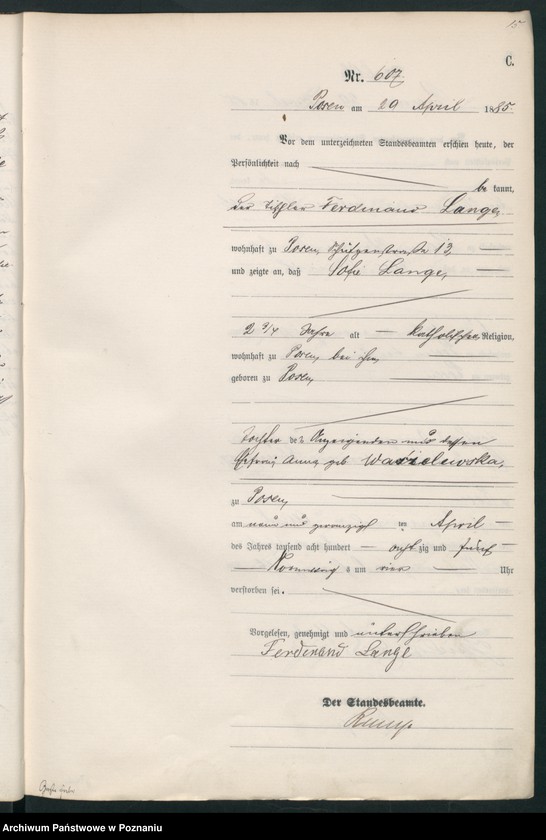 15
C.
Nr. 607.
Posen am 29 April 1885
Vor dem unterzeichneten Standesbeamten erschien heute, der
Persönlichkeit nach
be kannt,
der Tischler Ferdinand Lange,
wohnhaft zu Posen, Schützenstraße 13,
und zeigte an, daß Sofie Lange,
2 3/4 Jahre alt katholischer Religion,
wohnhaft zu Posen, bei ihm,
geboren zu Posen,
Tochter des Anzeigenden und dessen
Ehefrau Anna geb
zu Posen,
am neun und zwanzigsten April
des Jahres tausend acht hundert acht zig und fünf
Vormittags um vier Uhr
verstorben sei.
Vorgelesen, genehmigt und unterschrieben
Ferdinand Lange
Der Standesbeamte.
Archiwum Państwowe w Poznaniu